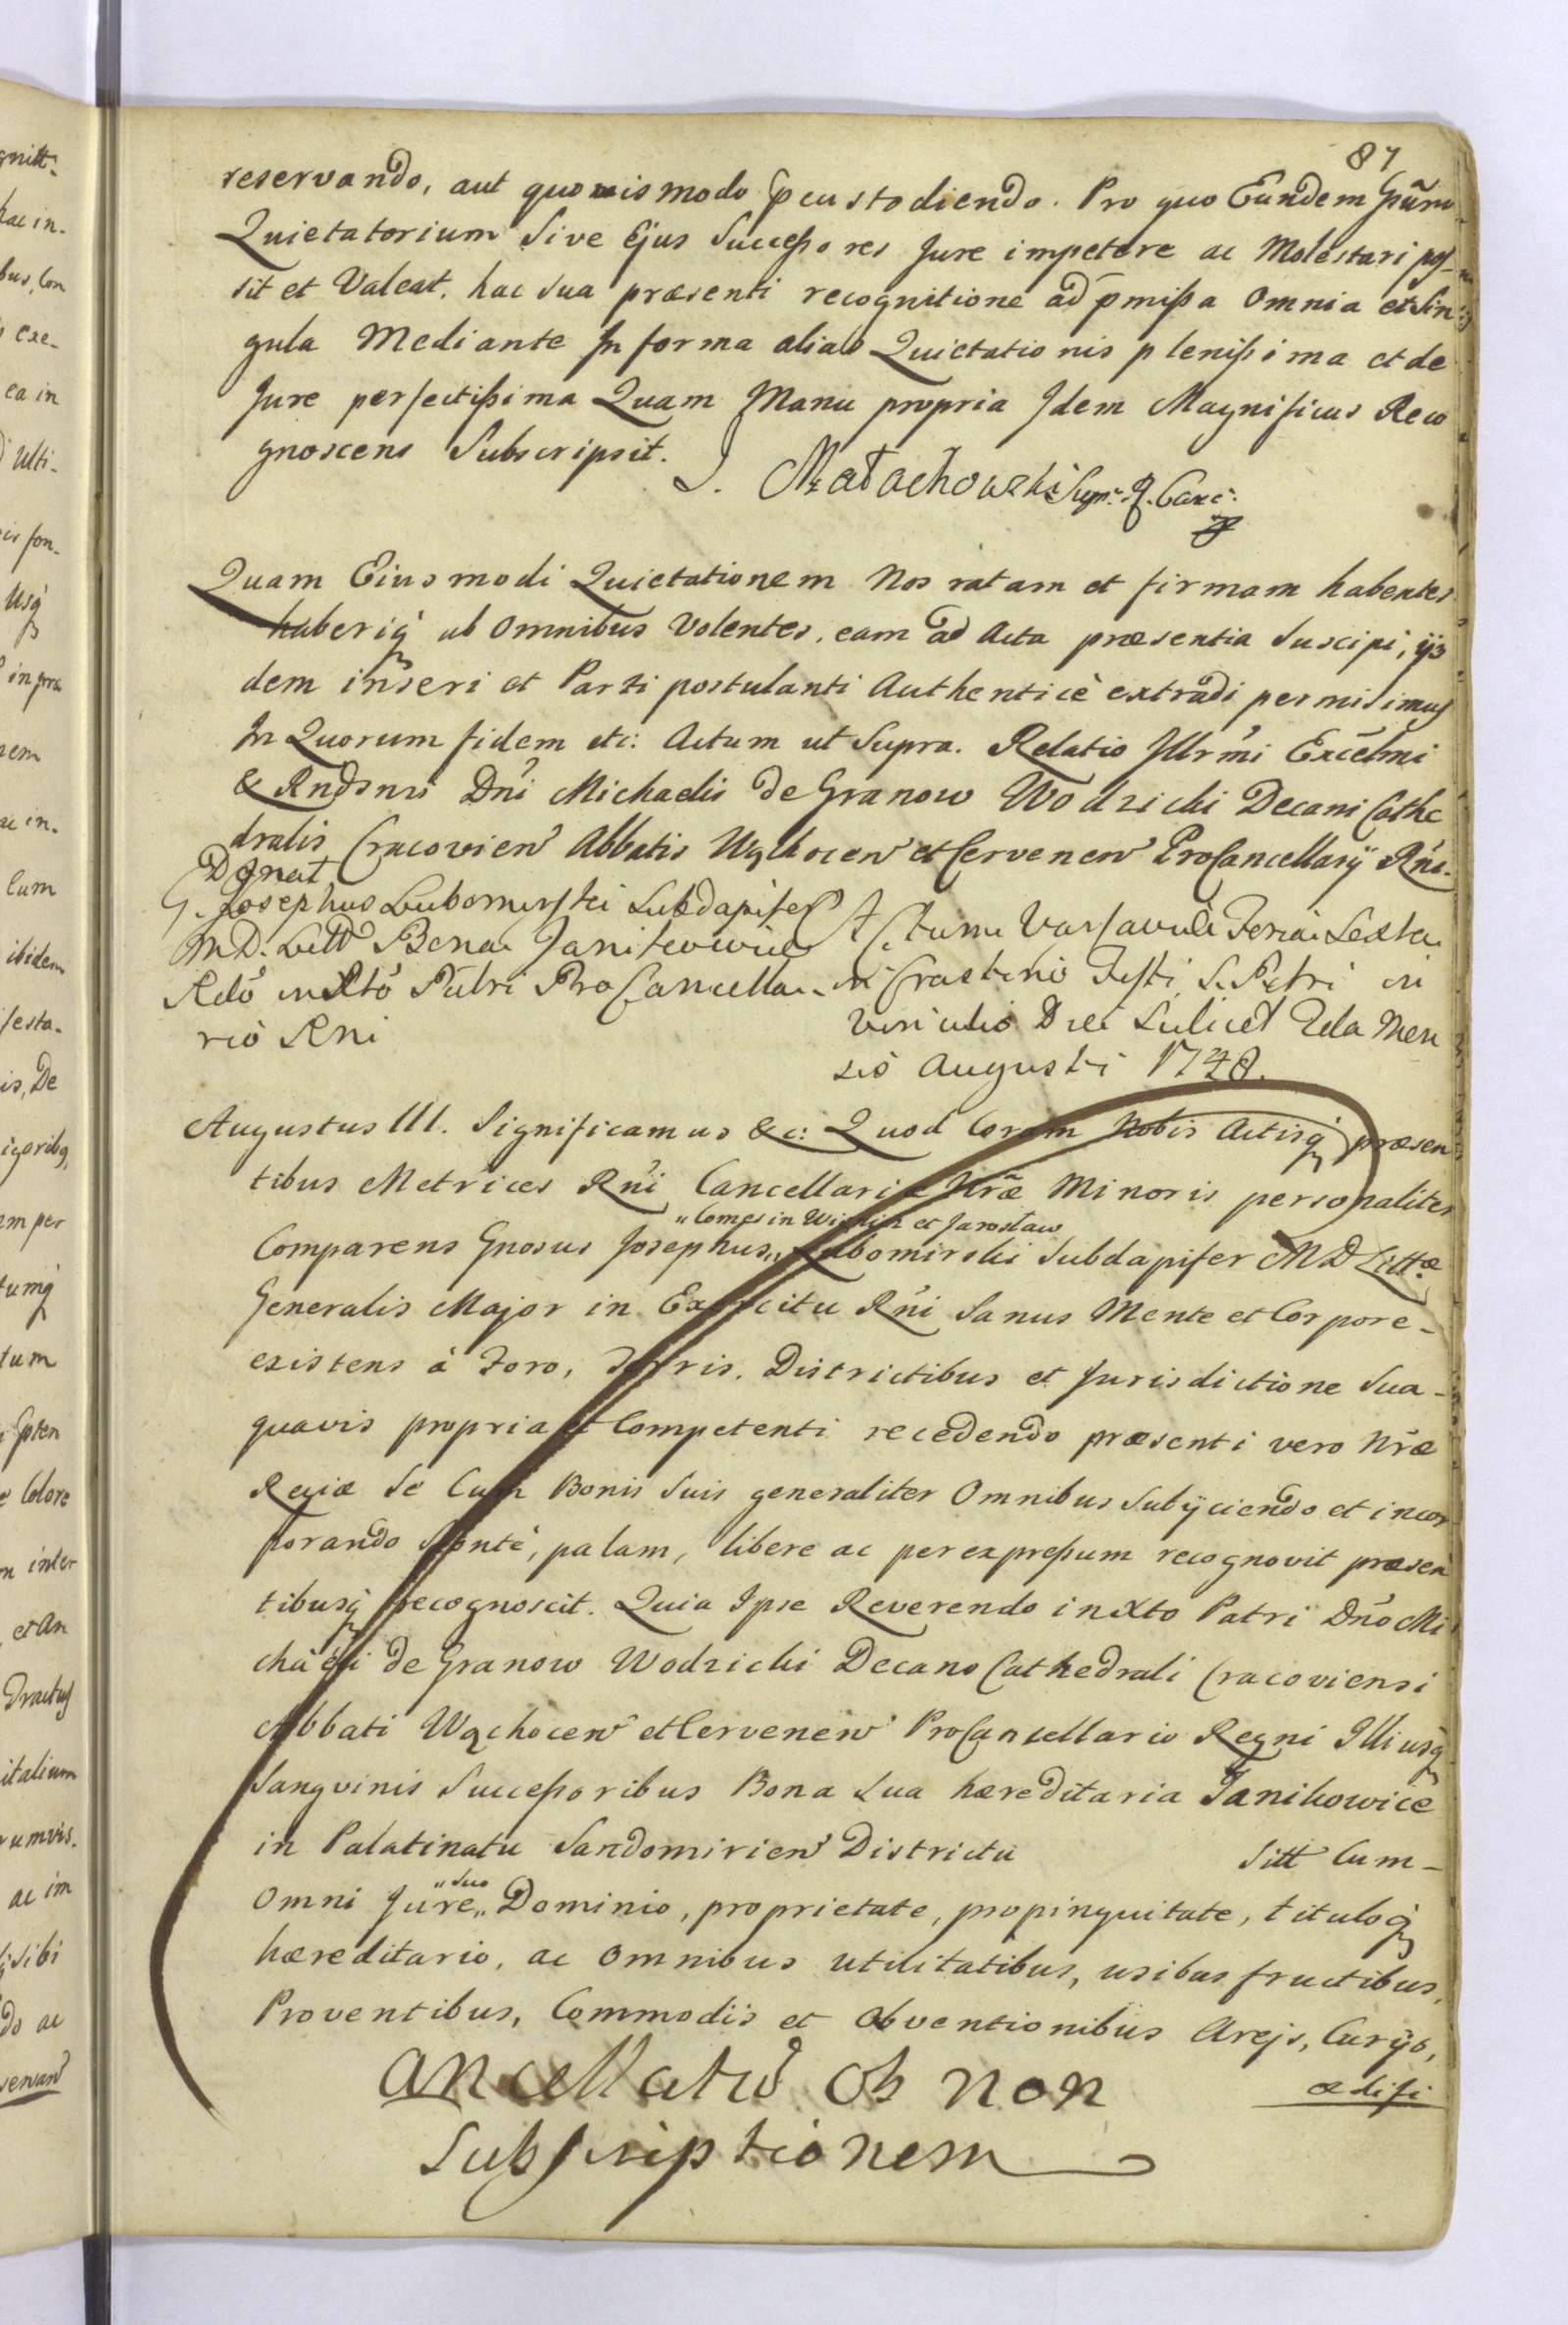 87
reservando, aut quovismodo pcustodiendo. Pro quo Eundem Gnūm
Quietatorium Sive Ejus Successores Jure impetere ac Molestari pos-
sit et Valeat. hac sua præsenti recognitione ad pmissa Omnia et Sin
gula Mediante In forma alias Quietationis plenissima et de
Jure perfectissima Quam Manu propria Idem Magnificus Reco
gnoscens Subscripsit.
J. Małachowski Supr. R. Canc:
Quam Eiusmodi Quietationem Nos ratam et firmam habentes
haberiq ab Omnibus Volentes, eam ad Acta præsentia Suscipi, ijs
dem inseri et Parti postulanti Authenticè extradi permisimus
In Quorum fidem etc: Actum ut Supra. Relatio Illrmi Excelmi
& Rndsmi Dni Michaelis de Granow Wodzicki Decani Cathe
dralis Cracovien Abbatis Wąchocen et Cervenen ProCancellarij Rni.
Donat
G. Josephus Lubomirski Subdapifer
M.D. Litt Bona Janikowice
Rdo in Xto Patri ProCancella-
rio Rni
Actum Varsaviæ Feria Sexta
in Crastino Festi S. Petri in
Vinculis Diei Scilicet 2da Men
sis Augusti 1748.
Augustus III. Significamus &c: Quod Coram Nobis Actisq præsen
tibus Metrices Rni Cancellariæ Nræ Minoris personaliter
"Comes in Wiśnicz et Jarosław
Comparens Gnosus Josephus,, Lubomirski Subdapifer M D Littæ
Generalis Major in Exercitu Rni Sanus Mente et Corpore-
existens à Foro, Terris. Districtibus et Jurisdictione Sua-
quavis propria et Competenti recedendo præsenti vero Nræ
Regiæ Se Cum Bonis Suis generaliter Omnibus Subijciendo et incor
porando Sponte, palam, libere ac per expressum recognovit præsen
tibusq recognoscit. Quia Ipse Reverendo in Xto Patri Dno Mi
chaeli de Granow Wodzicki Decano Cathedrali Cracoviensi
Abbati Wąchocen et Cervenen ProCancellario Regni Illiusq
Sangvinis Successoribus Bona Sua hæreditaria Janikowice
in Palatinatu Sandomirien Districtu Sitt Cum-
"suo
Omni Jure,, Dominio, proprietate, propinquitate, tituloq
hæreditario, ac Omnibus utilitatibus, usibus fructibus,
Proventibus, Commodis et Obventionibus Areis, Curijs,
ædifi
ancellatur ob non
subscriptionem